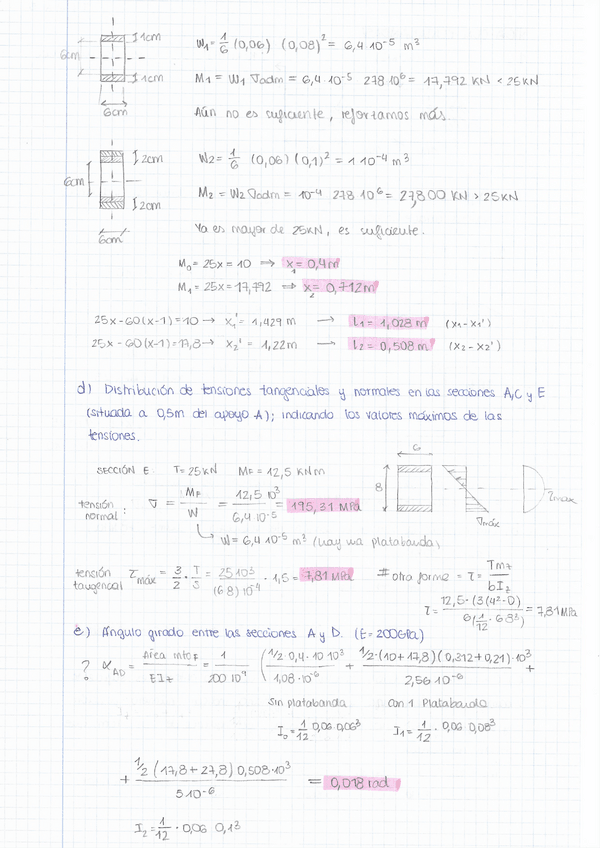 1cm
6cm
1cm
6cm
W1 = 1/6 (0,06) (0,08)² = 6,4 10⁻⁵ m³
M1 = W1 σadm = 6,4 10⁻⁵ 278 10⁶ = 17,792 KN < 25KN
Aún no es suficiente, refortamos más.
2cm
6cm
2cm
6cm
W2 = 1/6 (0,06) (0,1)² = 1 10⁻⁴ m³
M2 = W2 σadm = 10⁻⁴ 278 10⁶ = 27,800 KN > 25KN
Ya es mayor de 25KN, es suficiente.
M0 = 25x = 10 ⇒ x1 = 0,4m
M1 = 25x = 17,792 ⇒ x2 = 0,712m
25x - 60(x-1) = 10 → x1' = 1,429 m → l1 = 1,028 m (x1 - x1')
25x - 60(x-1) = 17,8 → x2' = 1,22m → l2 = 0,508 m (x2 - x2')
d) Distribución de tensiones tangenciales y normales en las secciones A, C y E
(situada a 0,5m del apoyo A); indicando los valores máximos de las
tensiones.
SECCIÓN E T = 25 KN MF = 12,5 KNm
tensión normal: σ = MF/W = 12,5 10³/6,4 10⁻⁵ = 195,31 MPa
W = 6,4 10⁻⁵ m³ (hay una platabanda)
6
8
σmáx
τmáx
tensión tangencial τmáx = 3/2 · T/S = 25 10³/(6 8) 10⁻⁴ · 1,5 = 7,81 MPa
# otra forma = τ = Tmz/bIz
τ = 12,5·(3(4²-0)/6(1/12 · 6 8³) = 7,81 MPa
e) Ángulo girado entre las secciones A y D. (E = 200GPa)
? αAD = Área mtosF/EIz = 1/200 10⁹ (1/2 · 0,4 · 10 10³/1,08 · 10⁻⁶ + 1/2 · (10 + 17,8) (0,312 + 0,21) · 10³/2,56 10⁻⁶ +
Sin platabanda Con 1 Platabanda
I0 = 1/12 0,06 0,06³ I1 = 1/12 · 0,06 0,08³
+ 1/2 (17,8 + 27,8) 0,508 · 10³/5 10⁻⁶ = 0,018 rad
I2 = 1/12 · 0,06 0,1³